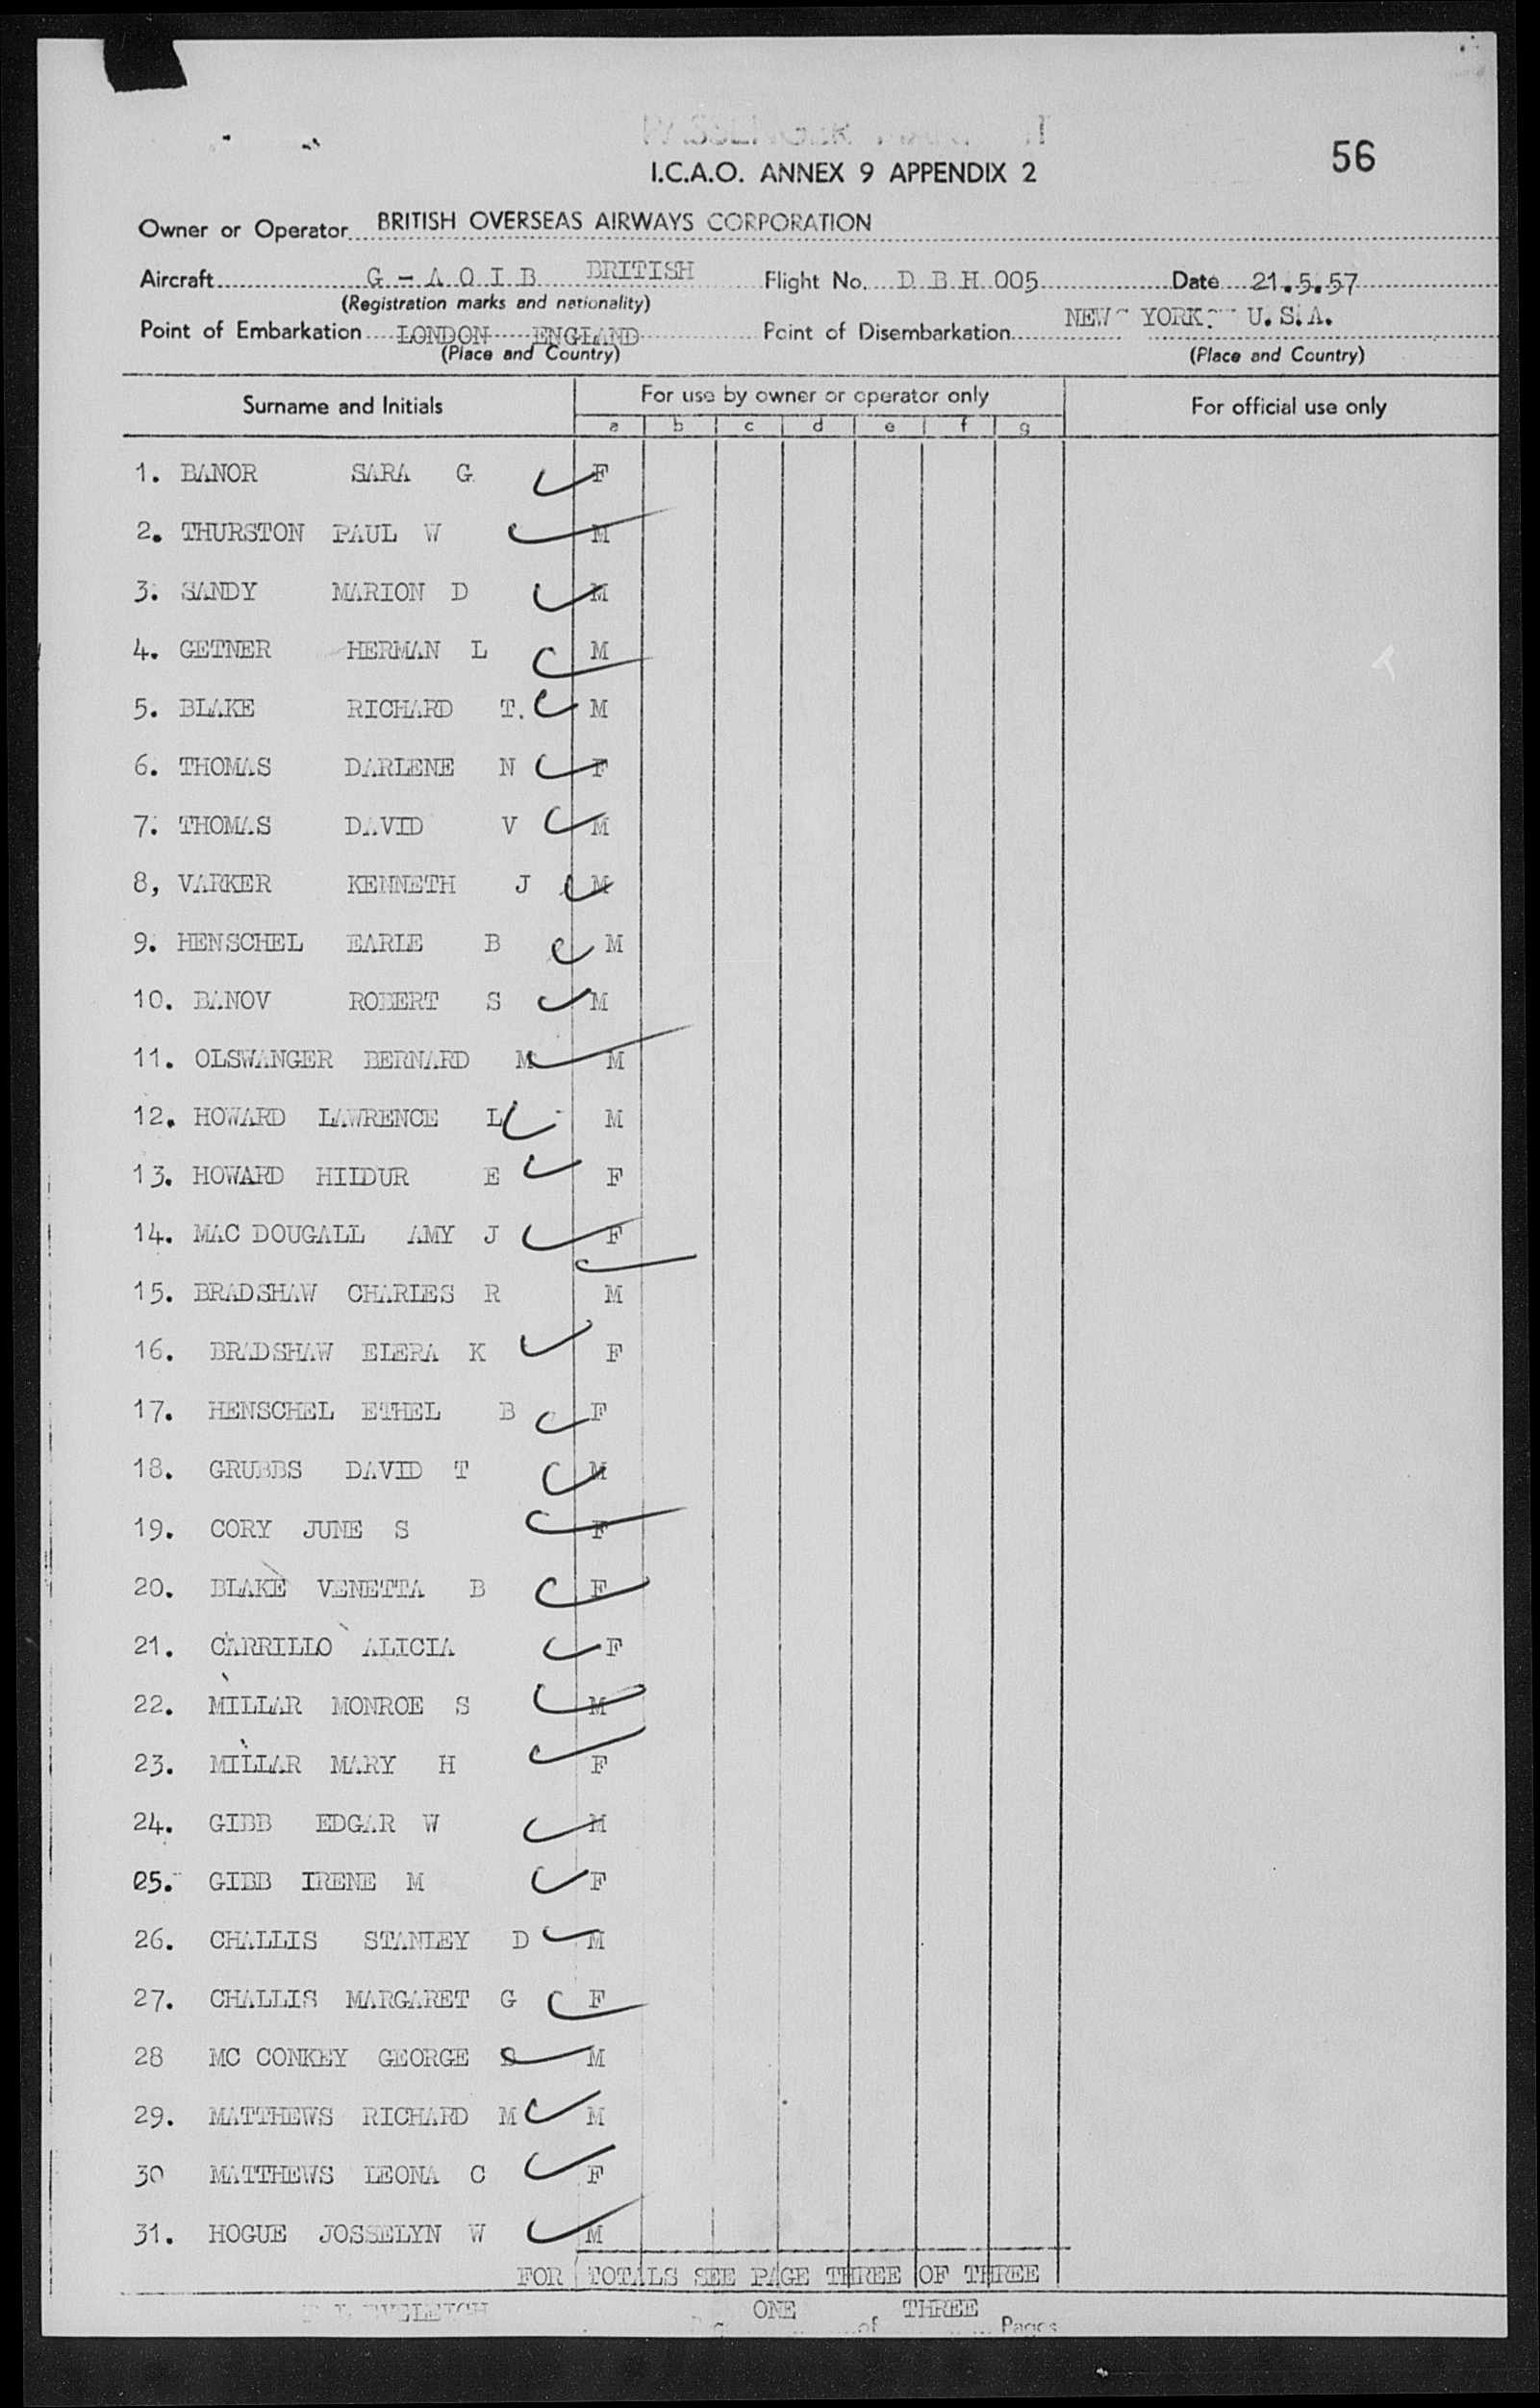 PASSENGER
I.C.A.O. ANNEX 9 APPENDIX 2
56
Owner or Operator BRITISH OVERSEAS AIRWAYS CORPORATION
Aircraft G - A O I B BRITISH Flight No. D B H 005 Date 21.5.57
(Registration marks and nationality)
Point of Embarkation LONDON ENGLAND Point of Disembarkation NEW YORK U.S.A.
(Place and Country) (Place and Country)
Surname and Initials For use by owner or operator only For official use only
a b c d e f g
1. BANOR SARA G F
2. THURSTON PAUL W M
3. SANDY MARION D M
4. GETNER HERMAN L M
5. BLAKE RICHARD T. M
6. THOMAS DARLENE N F
7. THOMAS DAVID V M
8, VARKER KENNETH J M
9. HENSCHEL EARLE B M
10. BANOV ROBERT S M
11. OLSWANGER BERNARD M M
12. HOWARD LAWRENCE L M
13. HOWARD HILDUR E F
14. MAC DOUGALL AMY J F
15. BRADSHAW CHARLES R M
16. BRADSHAW ELERA K F
17. HENSCHEL ETHEL B F
18. GRUBBS DAVID T M
19. CORY JUNE S F
20. BLAKE VENETTA B F
21. CARRILLO ALICIA F
22. MILLAR MONROE S M
23. MILLAR MARY H F
24. GIBB EDGAR W M
25. GIBB IRENE M F
26. CHALLIS STANLEY D M
27. CHALLIS MARGARET G F
28 MC CONKEY GEORGE M
29. MATTHEWS RICHARD M M
30 MATTHEWS LEONA C F
31. HOGUE JOSSELYN W M
FOR TOTALS SEE PAGE THREE OF THREE
ONE of THREE Pages